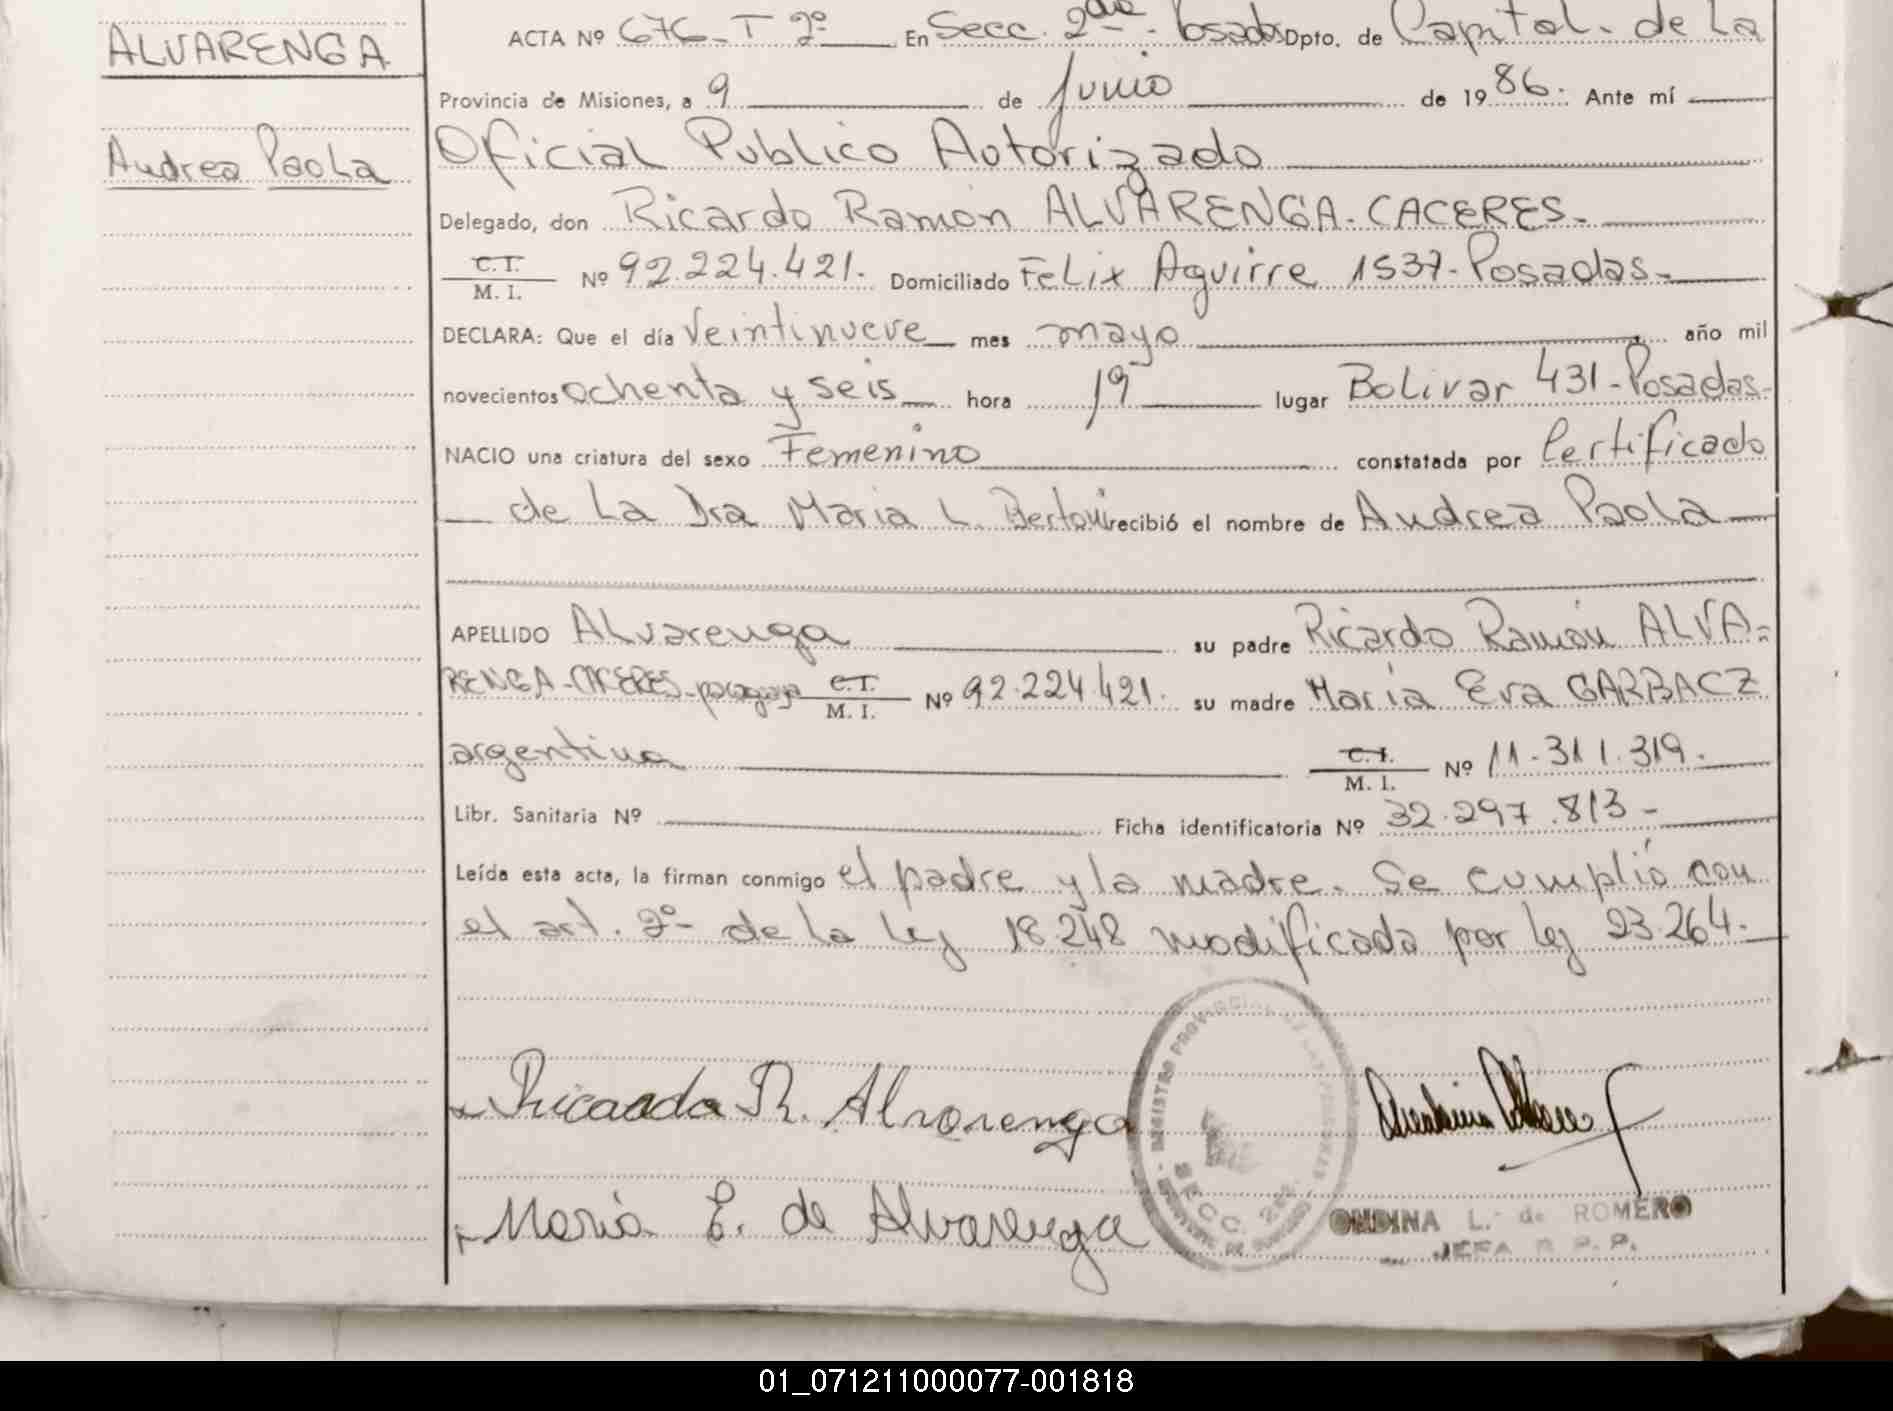 ALVARENGA
Andrea Paola
ACTA Nº 676-T 2º En Secc. 2da - Posadas Dpto. de Capital. de La
Provincia de Misiones, a 9 de junio de 1986. Ante mí
Oficial Publico Autorizado
Delegado, don Ricardo Ramón ALVARENGA-CACERES-
C.I. / M. I. Nº 92.224.421. Domiciliado Felix Aguirre 1537-Posadas-
DECLARA: Que el día Veintinueve mes mayo año mil
novecientos ochenta y seis hora 19 lugar Bolivar 431-Posadas-
NACIO una criatura del sexo Femenino constatada por Certificado
de La Dra Maria L. Bertoni recibió el nombre de Andrea Paola
APELLIDO Alvarenga su padre Ricardo Ramón ALVA-
RENGA-CACERES-paraguayo C.I. / M. I. Nº 92.224.421. su madre Maria Eva GARBACZ
argentina C.I. / M. I. Nº 11.311.319.
Libr. Sanitaria Nº Ficha identificatoria Nº 32.297.813-
Leída esta acta, la firman conmigo el padre y la madre. Se cumplió con
el art. 2º de la ley 18.248 modificada por ley 23.264.
Ricardo R. Alvarenga
María E. de Alvarenga
REGISTRO PROVINCIAL DE LAS PERSONAS
SECC. 2da.
ONDINA L. de ROMERO
JEFA R. P. P.
01_071211000077-001818